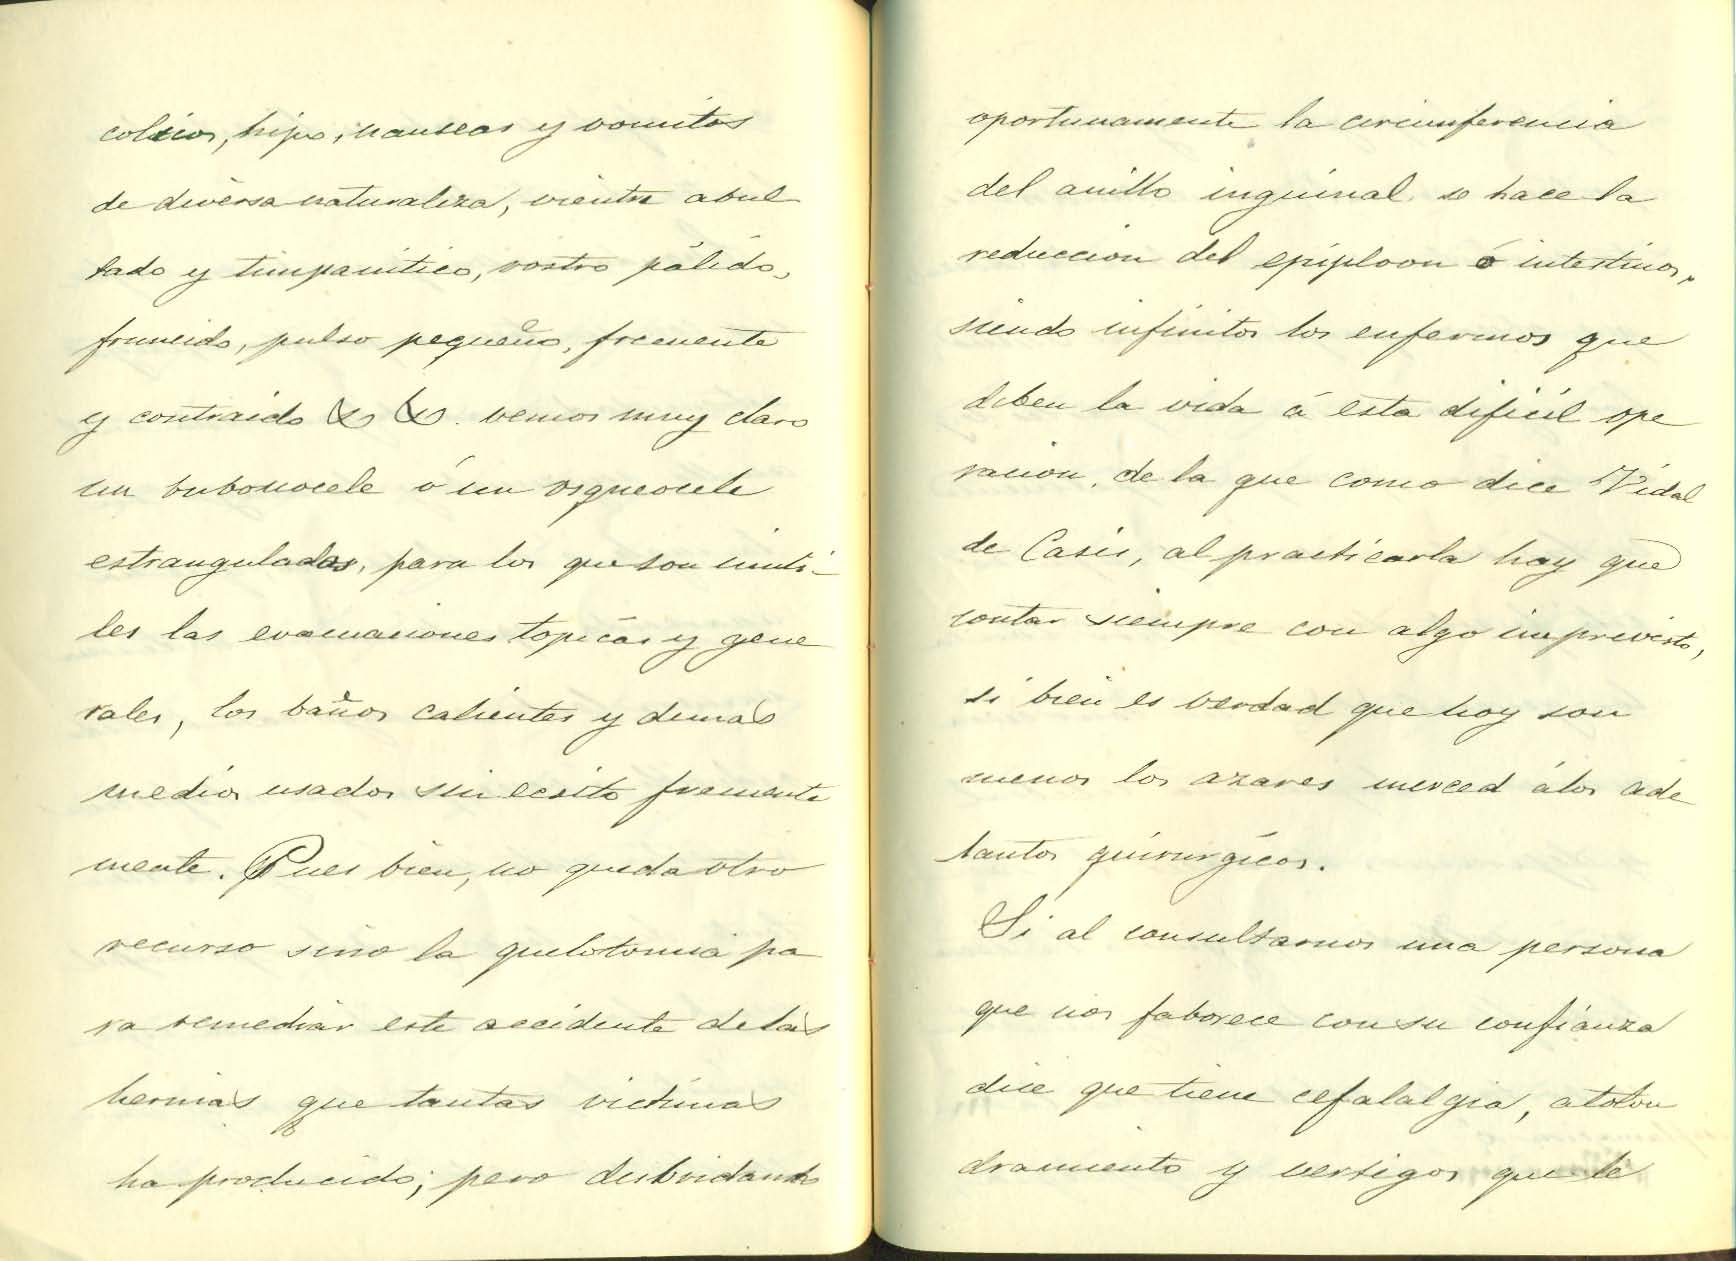 colicos, hipo, nauseas y vomitos
de diversa naturaleza, vientre abul
tado y timpanitico, rostro pálido,
fruncido, pulso pequeño, frecuente
y contraido &. &. vemos muy claro
un bubonocele ó un osqueocele
estrangulados, para los que son inuti-
les las evacuaciones topicas y gene
rales, los baños calientes y demas
medios usados sin ecsito frecuente
mente. Pues bien, no queda otro
recurso sino la quelotomia pa
ra remediar este accidente de las
hernias que tantas victimas
ha producido; pero desbridando
oportunamente la circunferencia
del anillo inguinal se hace la
reduccion del epiploon ó intestinos,
siendo infinitos los enfermos que
deben la vida á esta dificil ope
racion, de la que como dice Vidal
de Casis, al practicarla hay que
contar siempre con algo imprevisto,
si bien es verdad que hoy son
menos los azares merced á los ade
lantos quirurgicos.
Si al consultarnos una persona
que nos faborece con su confianza
dice que tiene cefalalgia, atolon
dramiento y vertigos que le